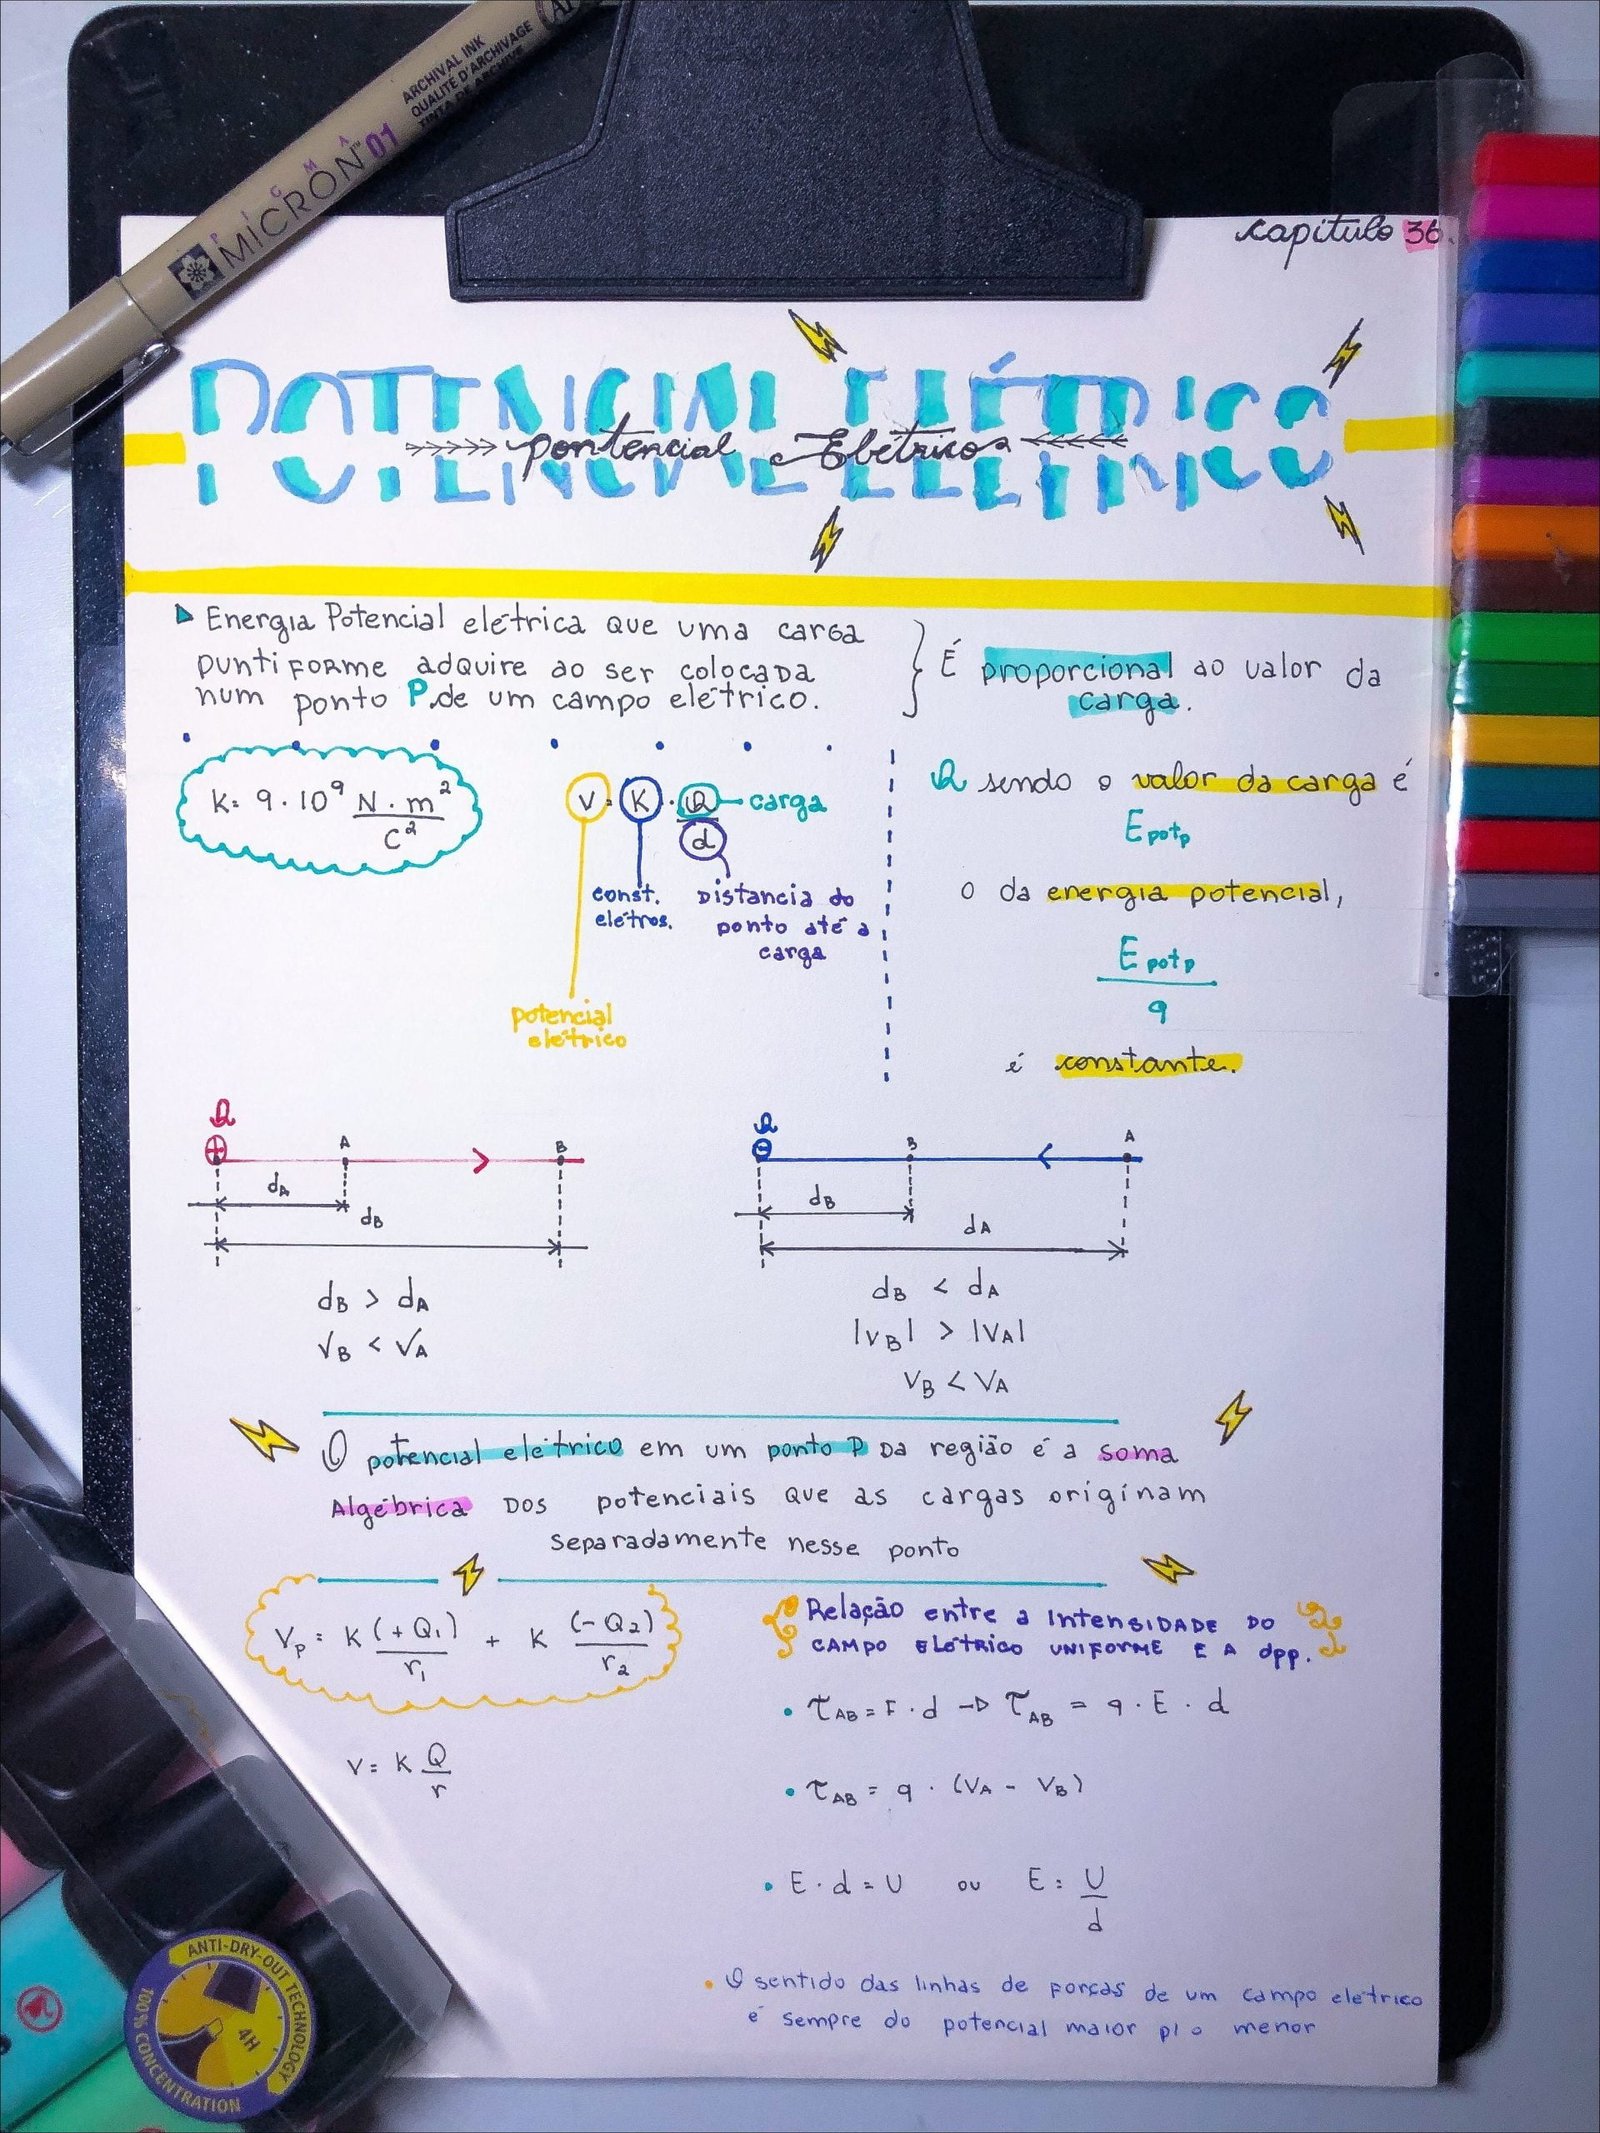 ARCHIVAL INK
QUALITÉ D'ARCHIVAGE
TINTA DE ARCHIVE
PIGMA
MICRON™ 01
capítulo 36.
POTENCIAL ELÉTRICO
pontencial Elétrico
Energia Potencial elétrica que uma carga
puntiforme adquire ao ser colocada
num ponto P de um campo elétrico.
É proporcional ao valor da
carga.
K = 9 · 10⁹ N · m² / C²
V = K · Q / d
carga
const.
elétros.
Distancia do
ponto até a
carga
potencial
elétrico
Q sendo o valor da carga é
E potp
o da energia potencial,
E potp / q
é constante.
Q
⊕ A B
dA
dB
dB > dA
VB < VA
Q
⊖ B A
dB
dA
dB < dA
|VB| > |VA|
VB < VA
O potencial elétrico em um ponto P da região é a soma
Algébrica dos potenciais que as cargas originam
separadamente nesse ponto
Vp = K (+Q1) / r1 + K (-Q2) / r2
V = K Q / r
Relação entre a intensidade do
campo elétrico uniforme e a dpp.
• τAB = F · d → τAB = q · E · d
• τAB = q · (VA - VB)
• E · d = U ou E = U / d
• O sentido das linhas de forças de um campo elétrico
é sempre do potencial maior p/ o menor
ANTI-DRY-OUT TECHNOLOGY
4H
100% CONCENTRATION